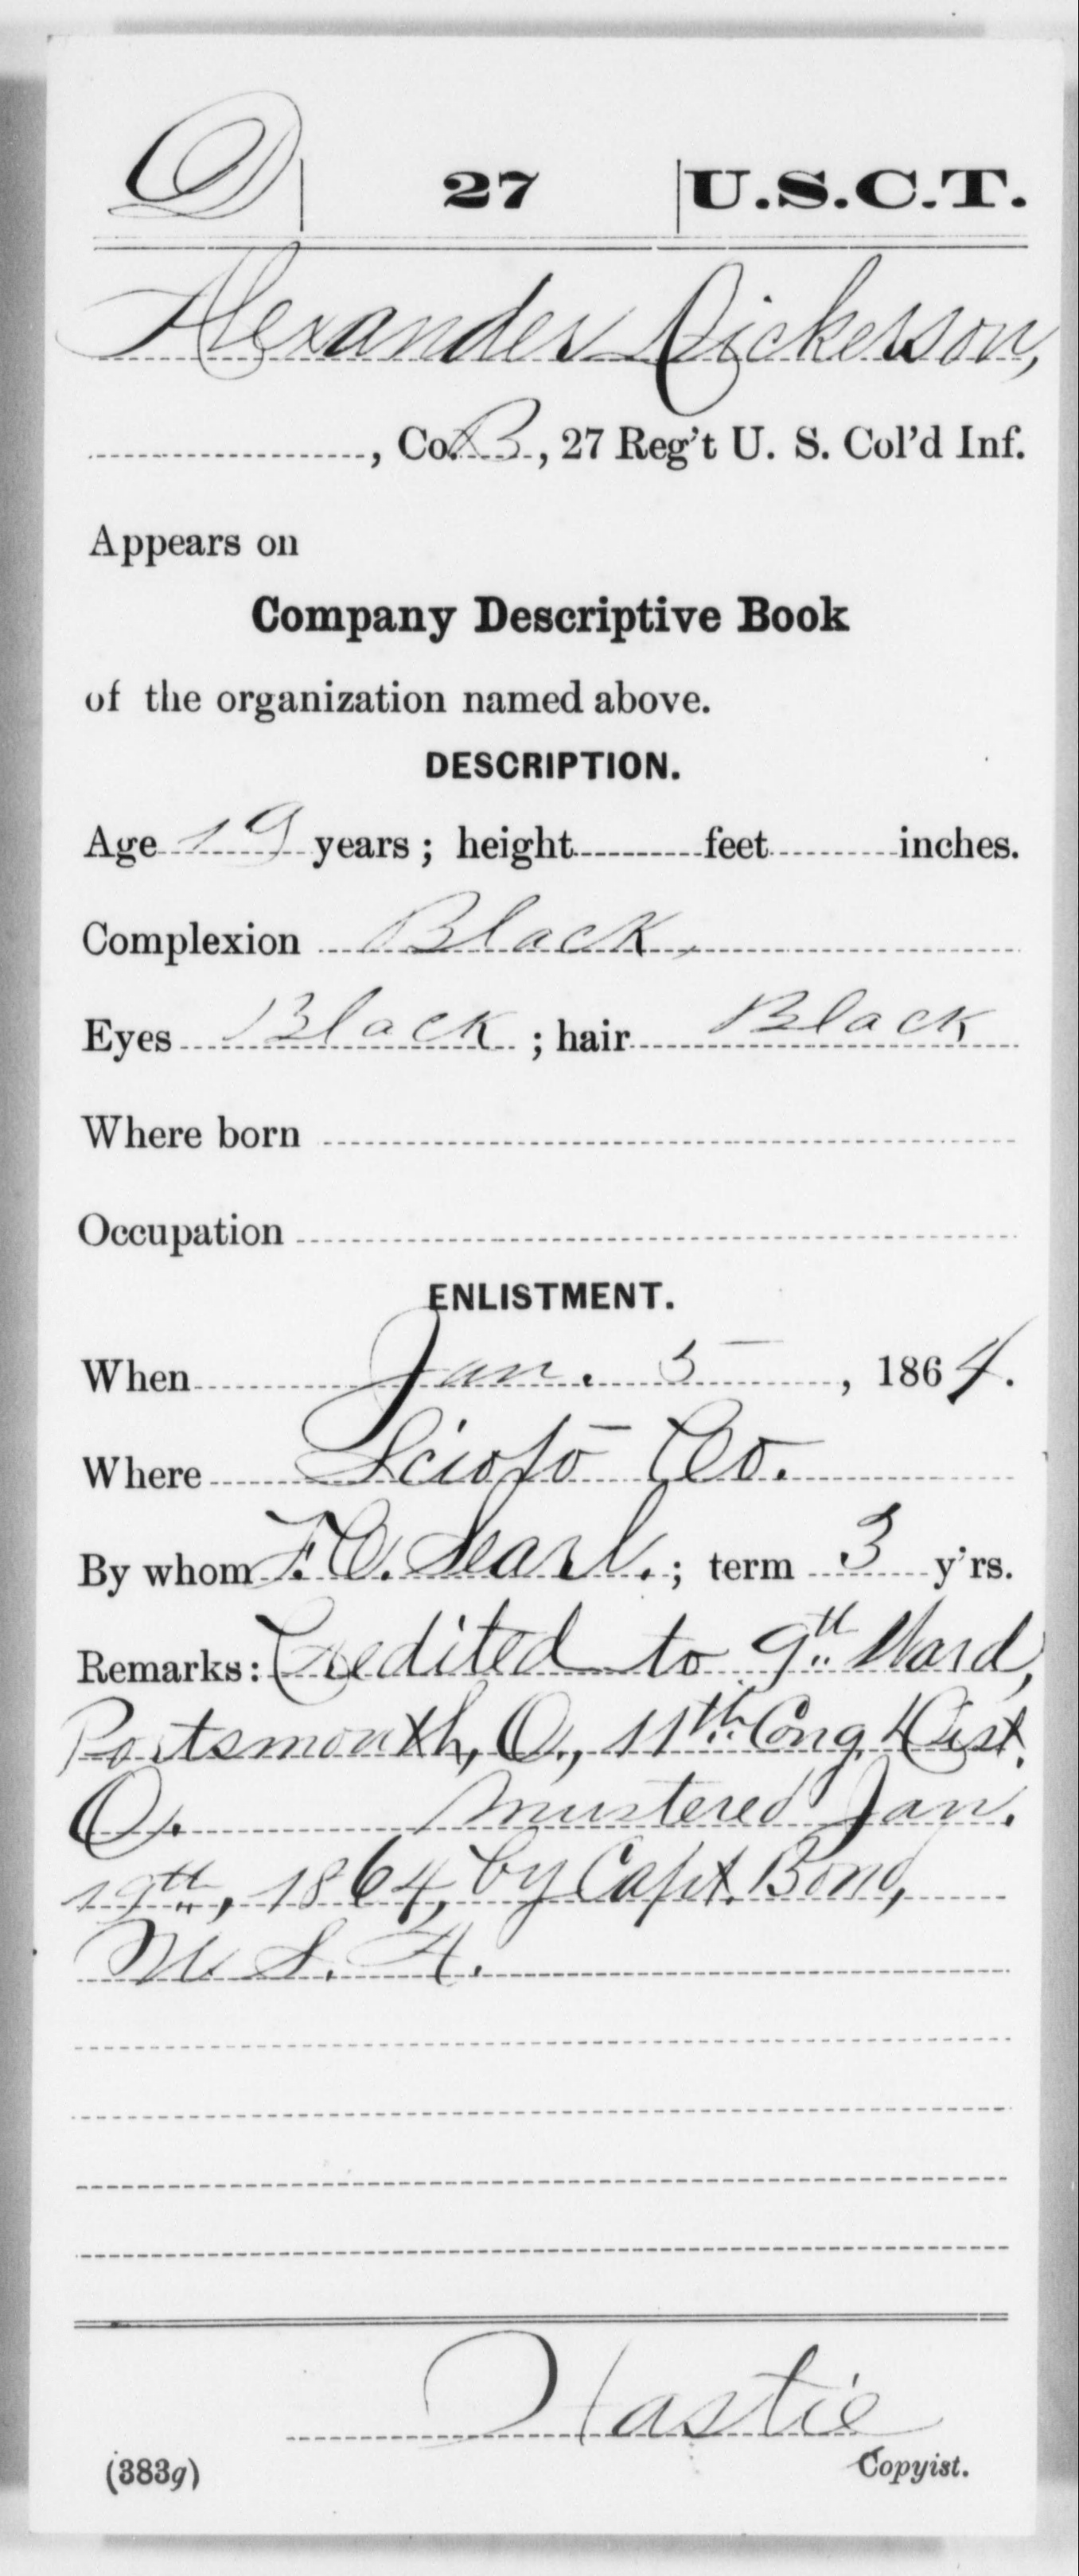 D | 27 | U.S.C.T.
Alexander Dickerson,
, Co. B, 27 Reg't U. S. Col'd Inf.
Appears on
Company Descriptive Book
of the organization named above.
DESCRIPTION.
Age 19 years; height feet inches.
Complexion Black,
Eyes Black; hair Black
Where born
Occupation
ENLISTMENT.
When Jan. 5, 1864.
Where Scioto Co.
By whom F.C. Searl.; term 3 y'rs.
Remarks: Credited to 9th Ward,
Portsmouth, O., 11th Cong. Dist.
O. Mustered Jan.
19th, 1864, by Capt. Bond,
U. S. A.
Hastie
(383g) Copyist.